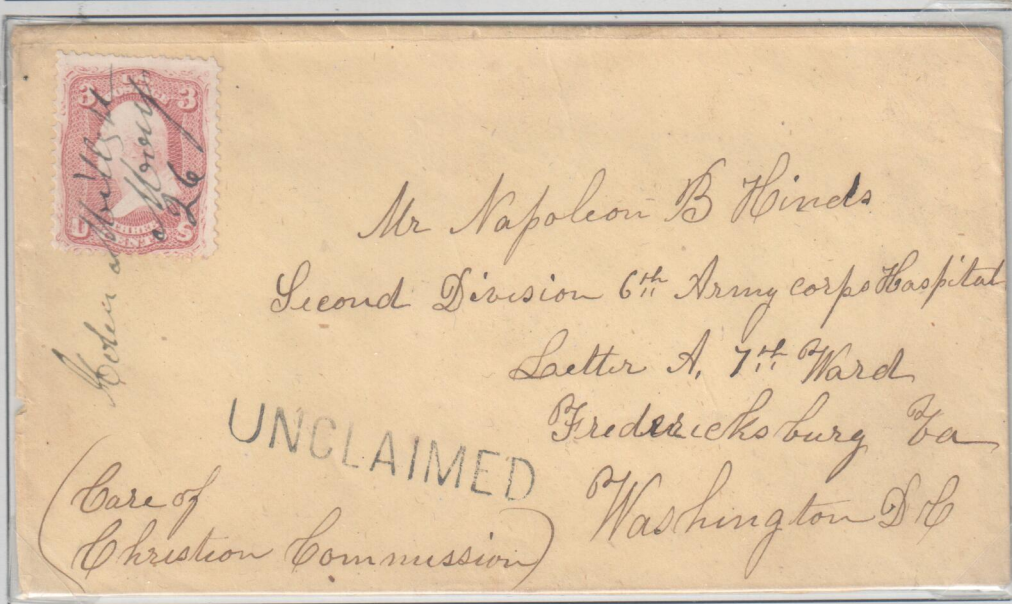 3 3
Mr Napoleon B Hinds
Second Division 6th Army corps Hospital
Letter A, 7th Ward
Fredericksburg Va
Washington D C
UNCLAIMED
(Care of
Christion Commission)
Eden
26
CENTS